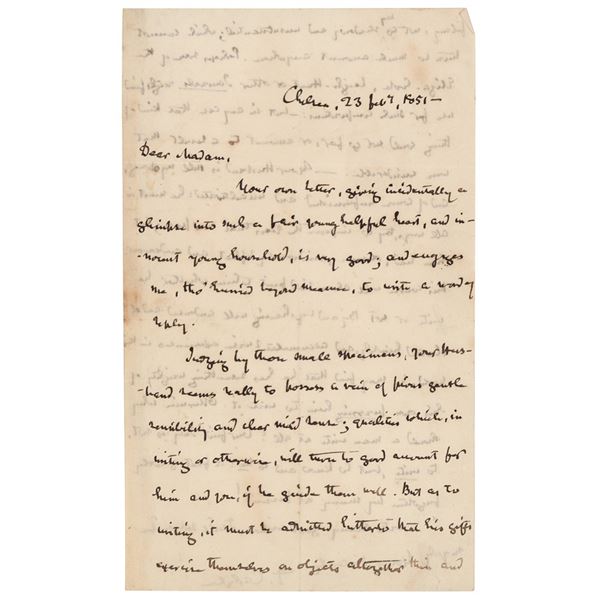 Chelsea, 23 feby, 1851 —
Dear Madam,
Your own letter, giving incidentally a
glimpse into such a fair young helpful heart, and in-
-nocent young household, is very good; and engages
me, tho' hurried beyond measure, to write a word of
reply.
Judging by these small specimens, your hus-
-band seems really to possess a vein of pious gentle
sensibility and clear mild sense; qualities which, in
writing or otherwise, will turn to good account for
him and you, if he guide them well. But as to
writing, it must be admitted hitherto that his gifts
exercise themselves on objects altogether thin and